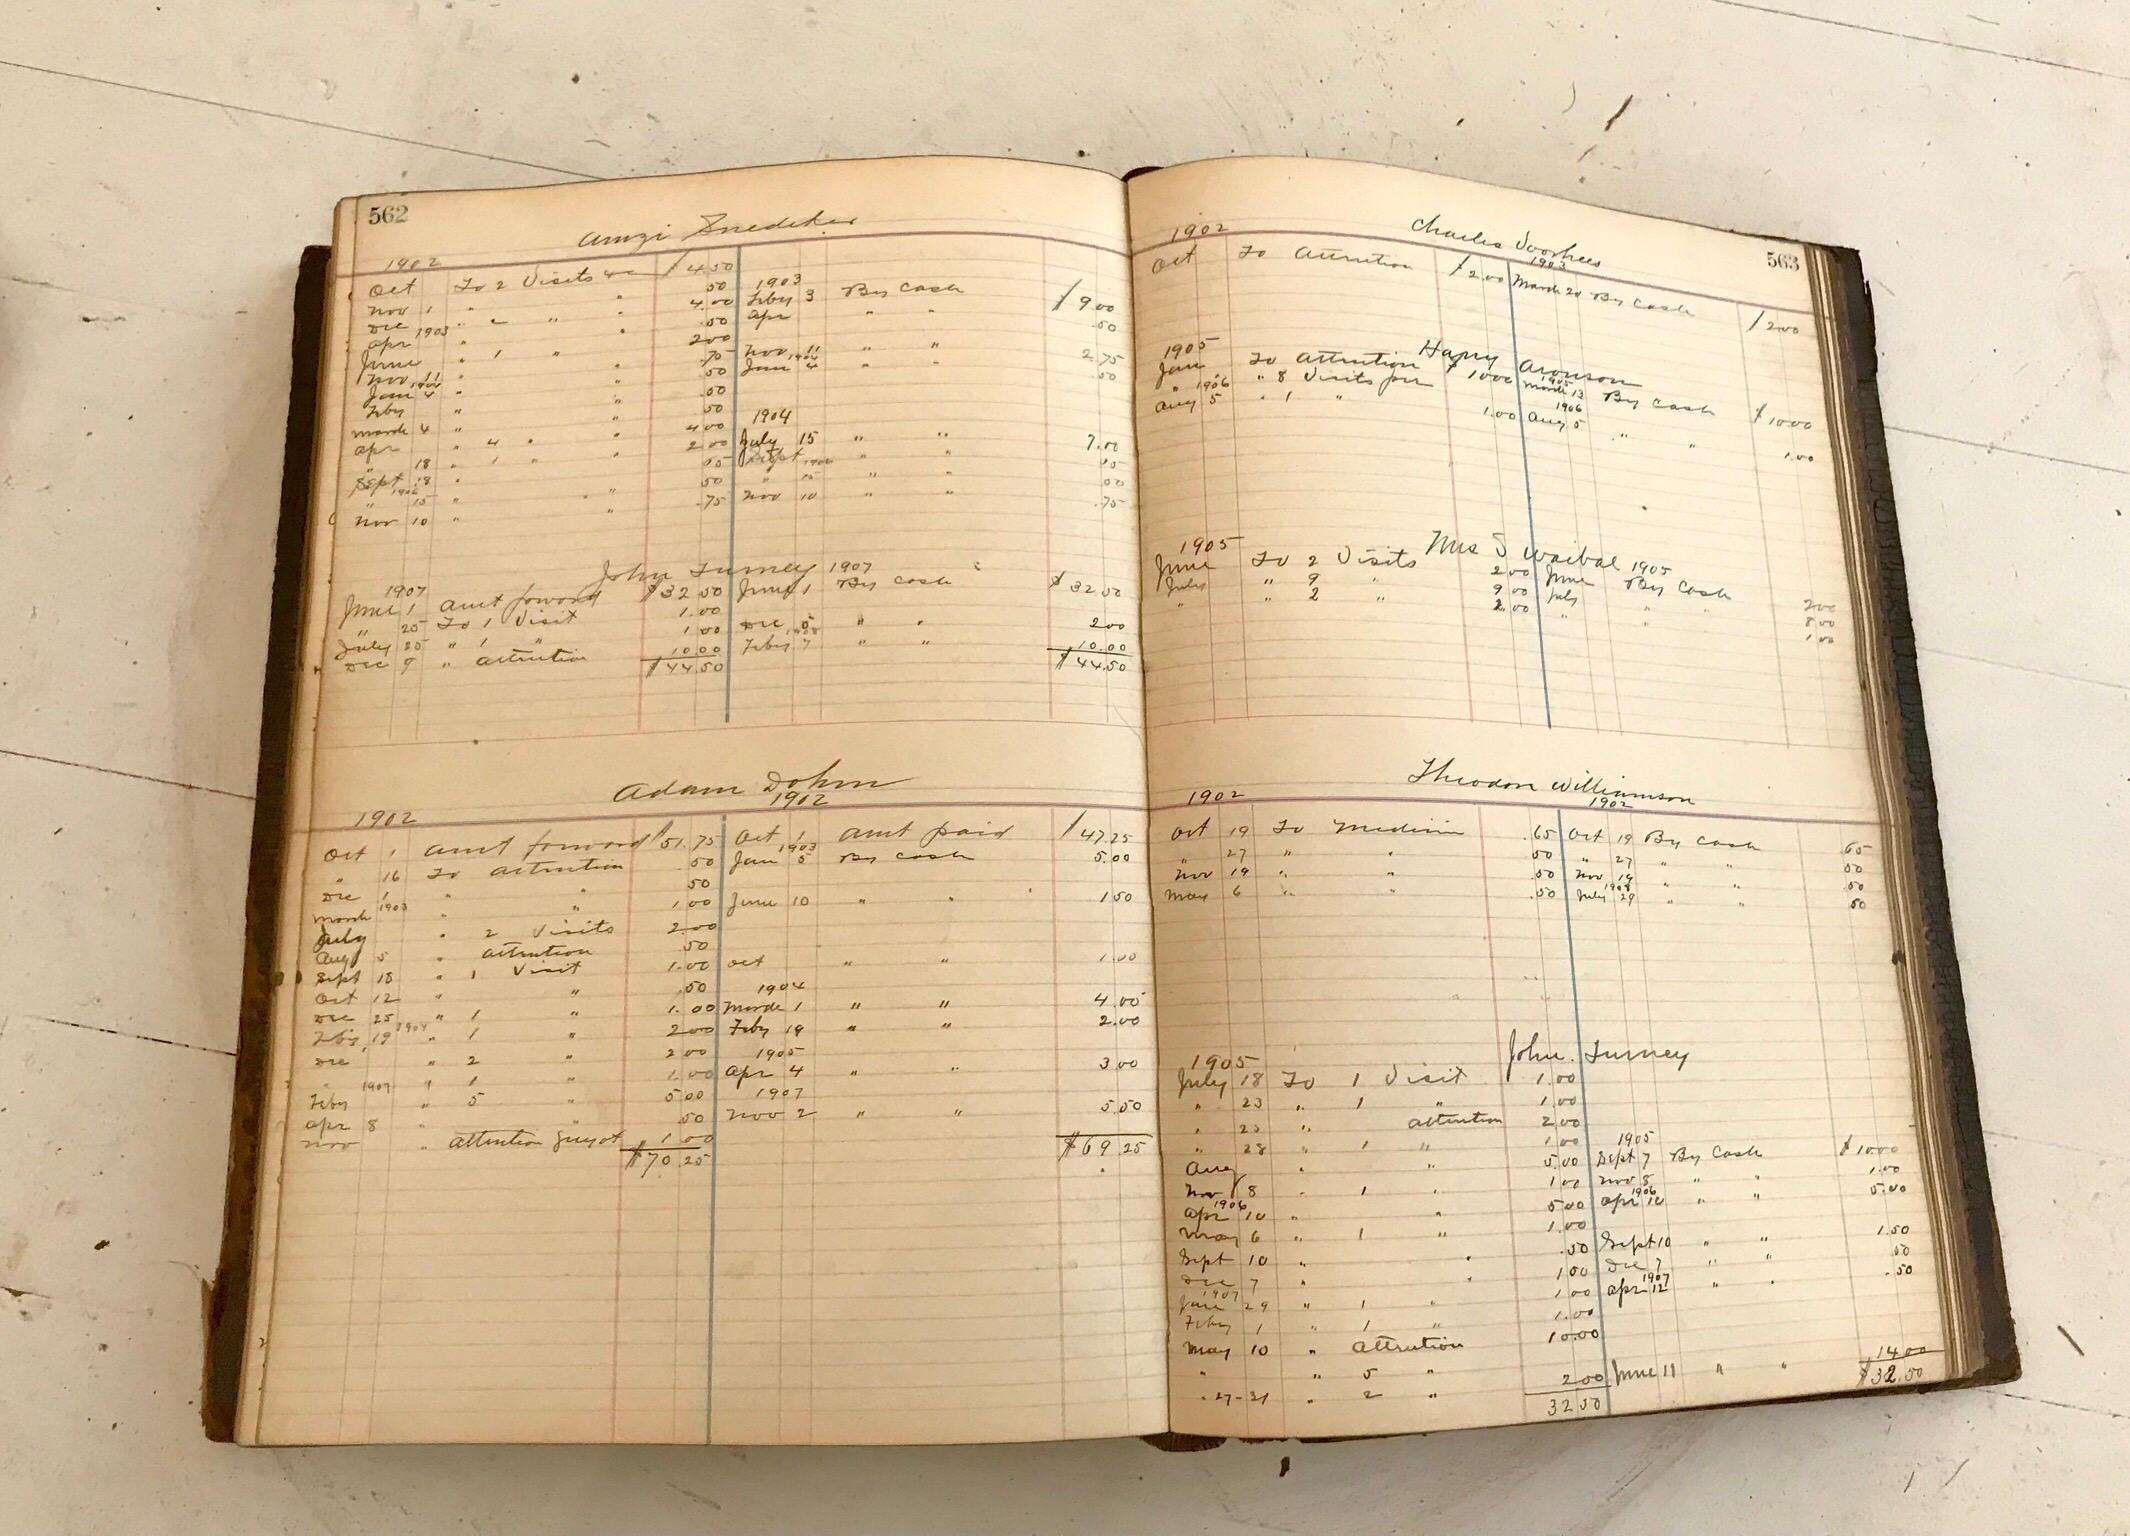 562
Amzi Snedeker
1902
Oct To 2 Visits &c $4 50
Nov 1 " " 50 1903
Dec " " " " 4.00 Feby 3 By Cash $9.00
Apr 1903 " " .50 Apr " " .50
June " 1 " 2 00
Nov 11 " " .75 Nov 11 " " 2.75
Jan 1904 4 " " 50 Jan 1904 4 " " .50
Feby " " .50
March 4 " " 50 1904
Apr " 4 " " 4 00
" 18 " 1 " " 2 00 July 15 " " 7.00
Sept 18 " Sept " "
1906 " 15 " " " 50 " 15 " "
Nov 10 " " .75 Nov 10 " " .75
John Turney
1907 1907
June 1 Amt forward $32 50 June 1 By Cash $32 50
" 25 To 1 Visit 1.00
July 25 " 1 " 1 00 Dec 5 " " 2 00
Dec 9 " attention 10.00 1908 Feby 7 " " 10.00
$44.50 $44.50
Adam Dohm
1902 1902
Oct 1 Amt forward $51.75 Oct 1 Amt paid $47.25
" 16 To attention .50 1903 Jan 5 By Cash 5.00
Dec 1 " " 50
March 1903 " " 1 00 June 10 " " 1 50
July " 2 Visits 2.00
Aug 5 " attention .50
Sept 18 " 1 Visit 1.00 Oct " " 1.00
Oct 12 " " .50 1904
Dec 25 " 1 " 1.00 March 1 " " 4.00
Feby 19 1904 " 1 " 2 00 Feby 19 " " 2.00
Dec " 2 " 2 00 1905
" " 1 " 1.00 Apr 4 " " 3 00
Feby 1907 " 5 " 5 00 1907
Apr 8 " " .50 Nov 2 " " 5.50
Nov " attention 1 00
$70 25 $69 25
563
Charles Voorhees
1902 1903
Oct To Attention $2.00 March 20 By Cash $2.00
Harry Aronson
1905
Jan To Attention $10.00 1905 March 13 By Cash $10.00
" " 8 Visits
1906 Aug 5 " 1 " 1.00 1906 Aug 5 " " 1.00
Mrs S Waibal
1905 1905
June To 2 Visits 2 00 June By Cash 2 00
July " 9 " 9 00 July " " 8 00
" " 2 " 2.00 " " " 1 00
Theodore Williamson
1902 1902
Oct 19 To Medicine .65 Oct 19 By Cash .65
" 27 " " .50 " 27 " " 50
Nov 19 " " .50 Nov 19 " " .50
May 6 " " .50 1903 July 29 " " 50
John Turney
1905
July 18 To 1 Visit 1.00
" 23 " 1 " 1.00
" 23 " attention 2 00
" 28 " 1 " 1 00 1905
Aug " " 5.00 Sept 7 By Cash $10.00
Nov 8 " 1 " 1 00 Nov 8 " " 1.00
1906 Apr 10 " " 5 00 1906 Apr 10 " " 5.00
May 6 " 1 " 1.00
Sept 10 " " .50 Sept 10 " " 1.50
Dec 7 " " 1 00 Dec 7 " " .50
1907 Jan 29 " 1 " 1 00 1907 Apr 12 " " .50
Feby 1 " 1 " 1.00
May 10 " attention 10.00
" " 5 "
" 27-31 " 2 " 2 00 June 11 " " 14 00
32 50 $32.50